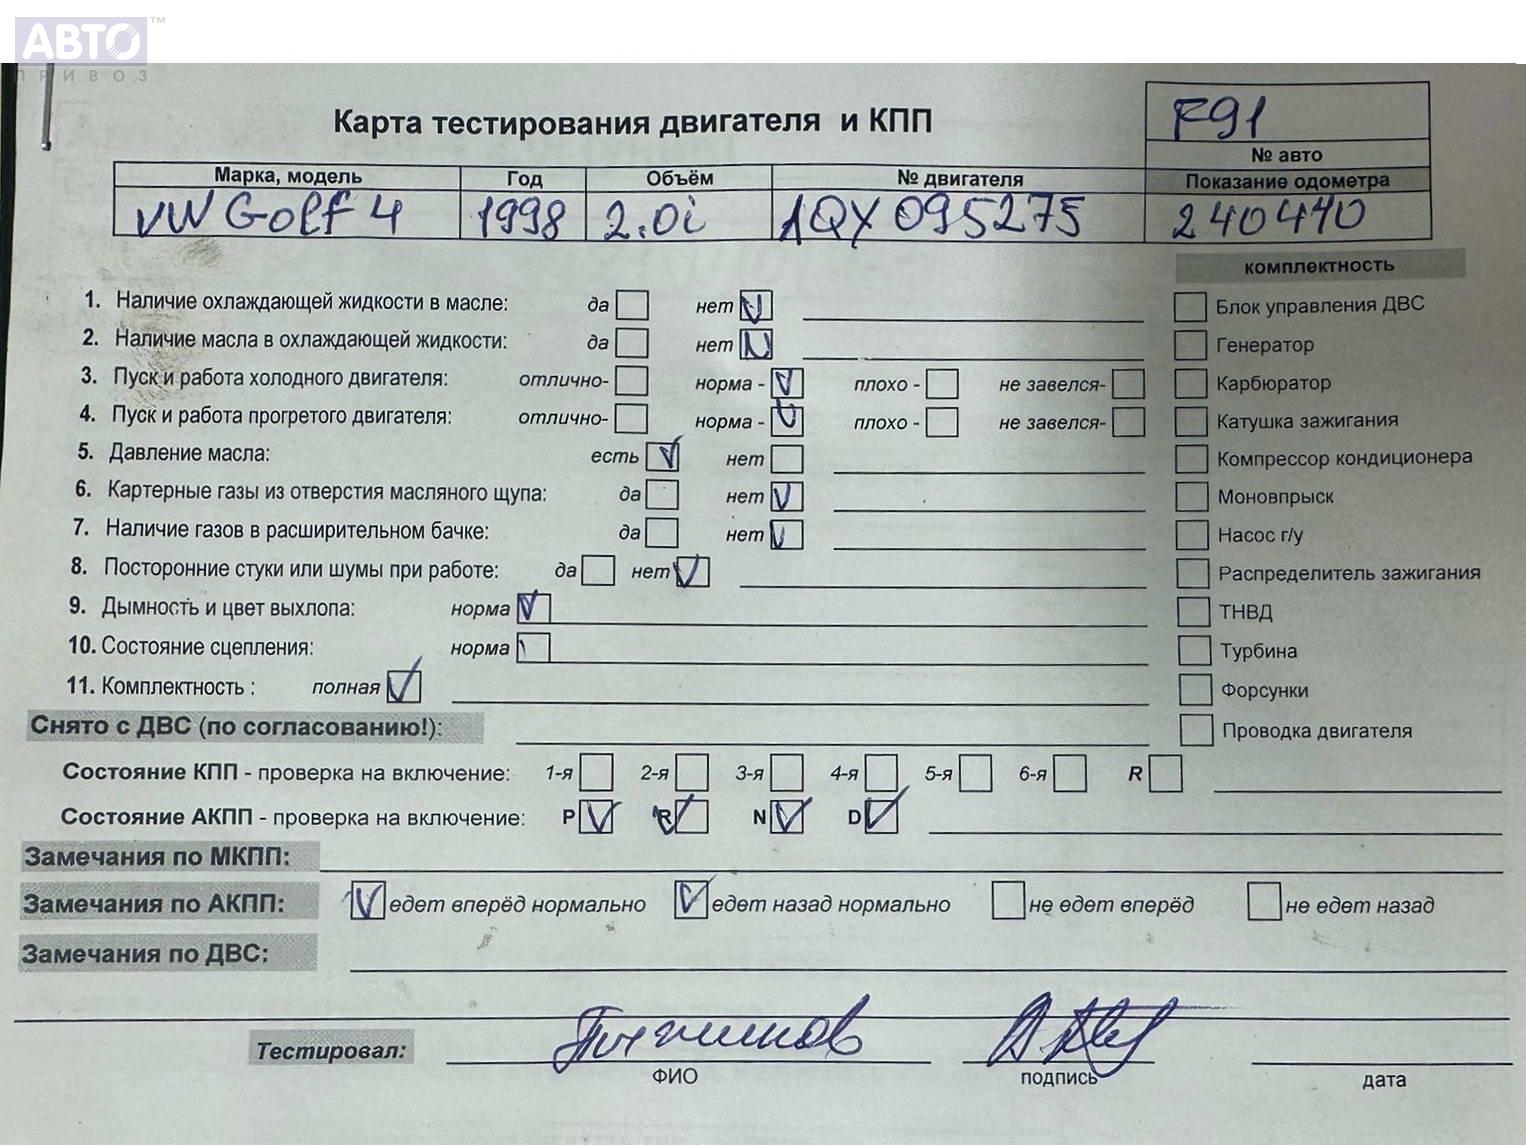 АВТО™
ПРИВОЗ
F91
Карта тестирования двигателя и КПП
№ авто
Марка, модель Год Объём № двигателя Показание одометра
VW Golf 4 1998 2.0i AQY 095275 240440
комплектность
1. Наличие охлаждающей жидкости в масле: да нет V Блок управления ДВС
2. Наличие масла в охлаждающей жидкости: да нет V Генератор
3. Пуск и работа холодного двигателя: отлично- норма - V плохо - не завелся- Карбюратор
4. Пуск и работа прогретого двигателя: отлично- норма - V плохо - не завелся- Катушка зажигания
5. Давление масла: есть V нет Компрессор кондиционера
6. Картерные газы из отверстия масляного щупа: да нет V Моновпрыск
7. Наличие газов в расширительном бачке: да нет V Насос г/у
8. Посторонние стуки или шумы при работе: да нет V Распределитель зажигания
9. Дымность и цвет выхлопа: норма V ТНВД
10. Состояние сцепления: норма Турбина
11. Комплектность : полная V Форсунки
Снято с ДВС (по согласованию!): Проводка двигателя
Состояние КПП - проверка на включение: 1-я 2-я 3-я 4-я 5-я 6-я R
Состояние АКПП - проверка на включение: P V R V N V D V
Замечания по МКПП:
Замечания по АКПП: V едет вперёд нормально V едет назад нормально не едет вперёд не едет назад
Замечания по ДВС:
Тестировал:
ФИО подпись дата